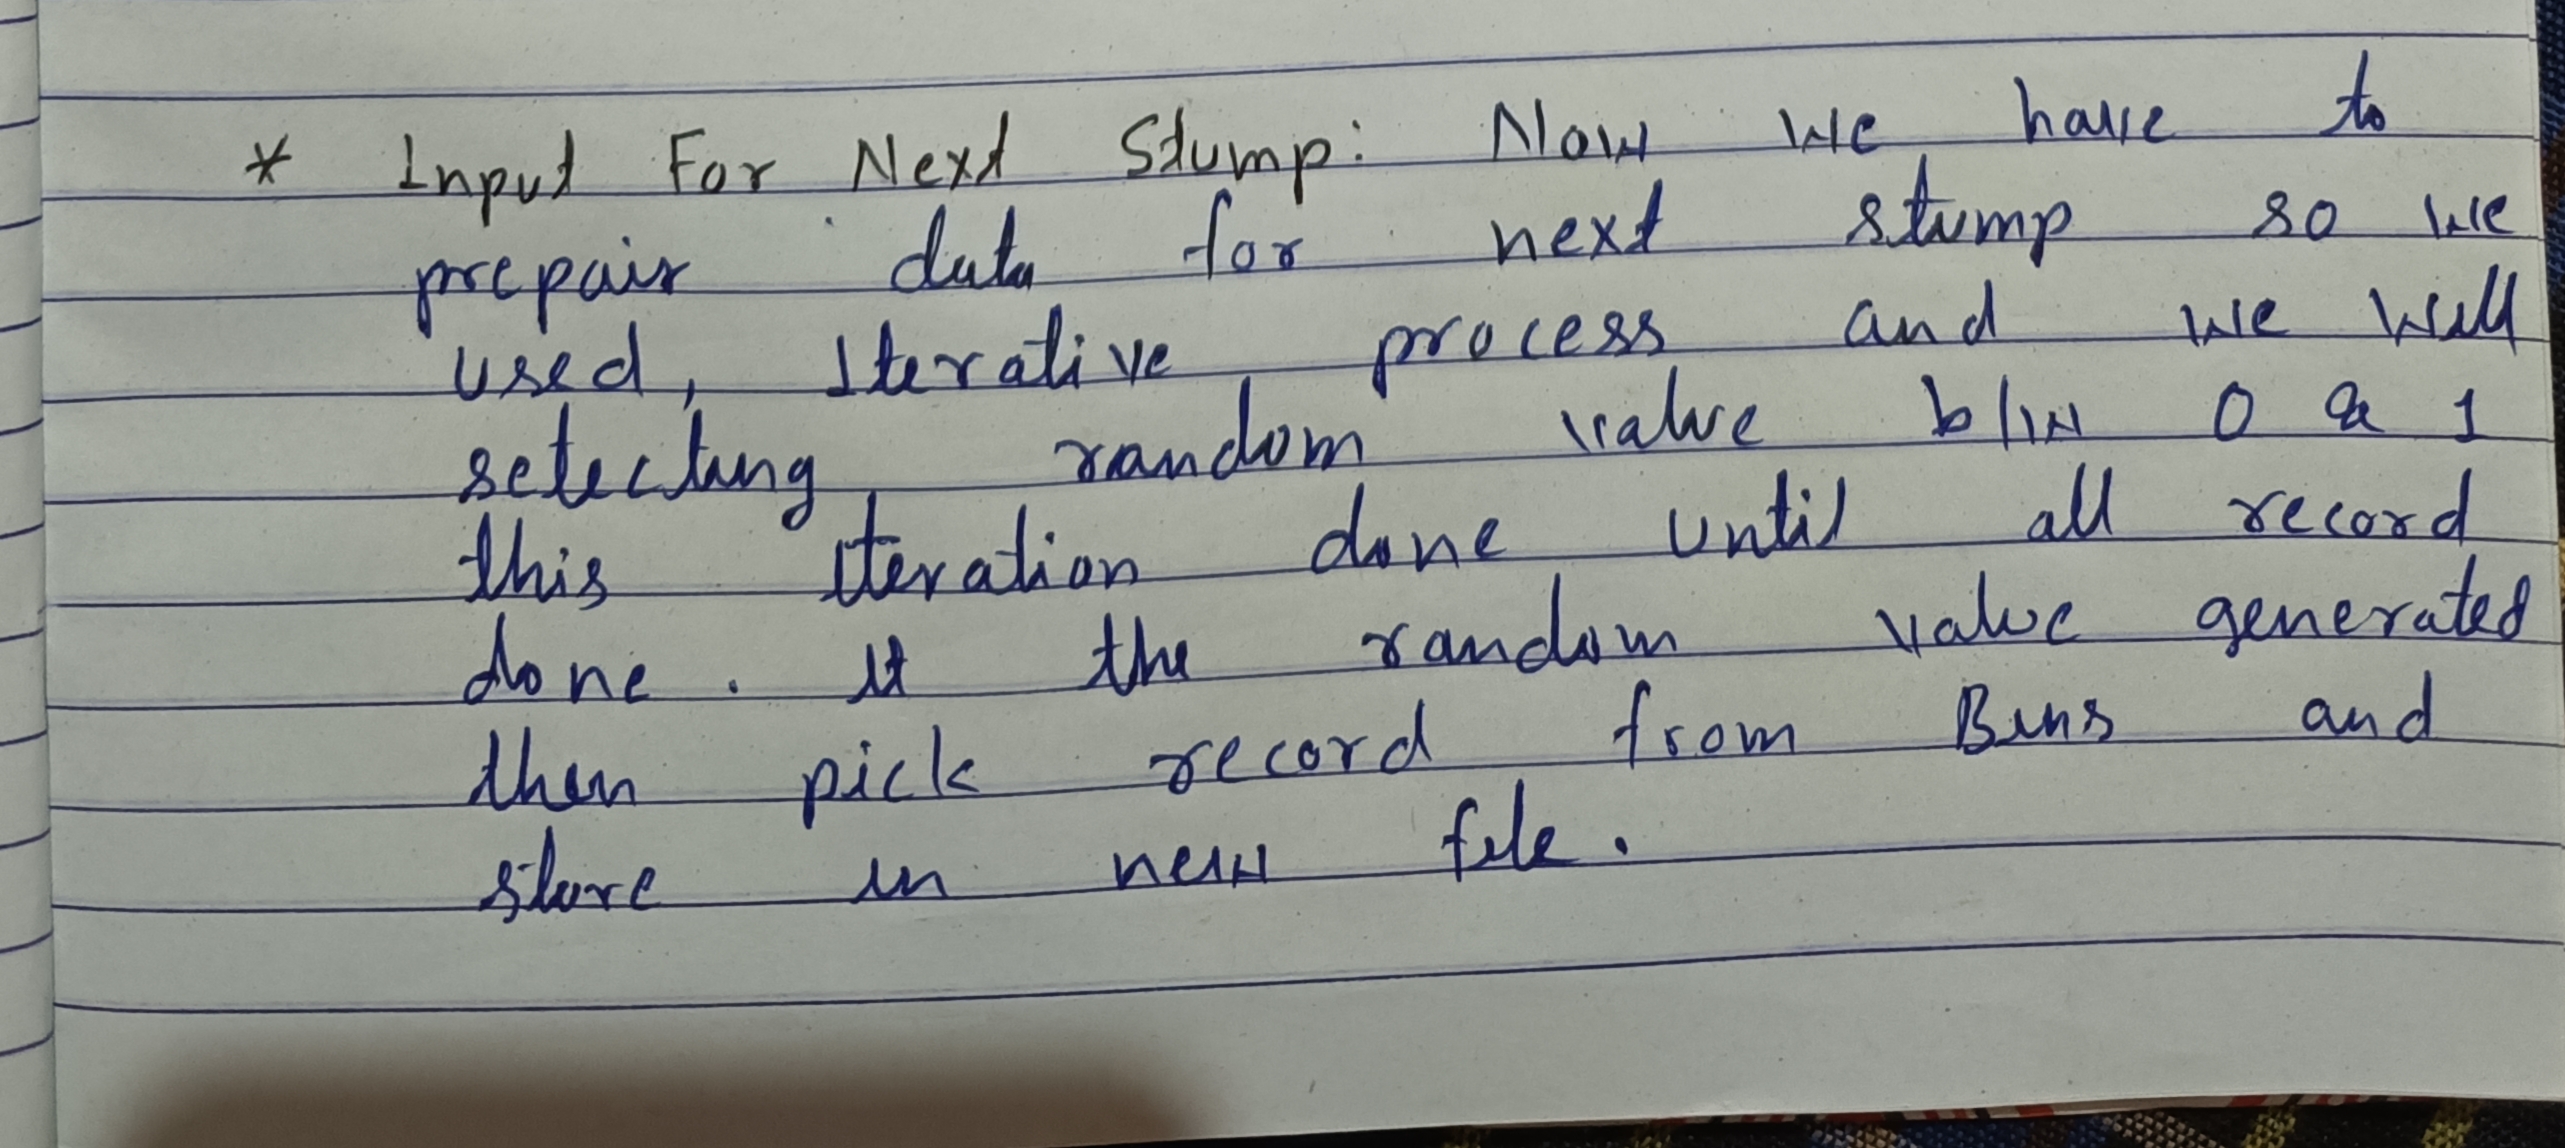 * Input For Next Stump: Now we have to
prepair data for next stump so we
used, Iterative process and we will
selecting random value b/w 0 & 1
this iteration done until all record
done. It the random value generated
then pick record from Bins and
store in new file.